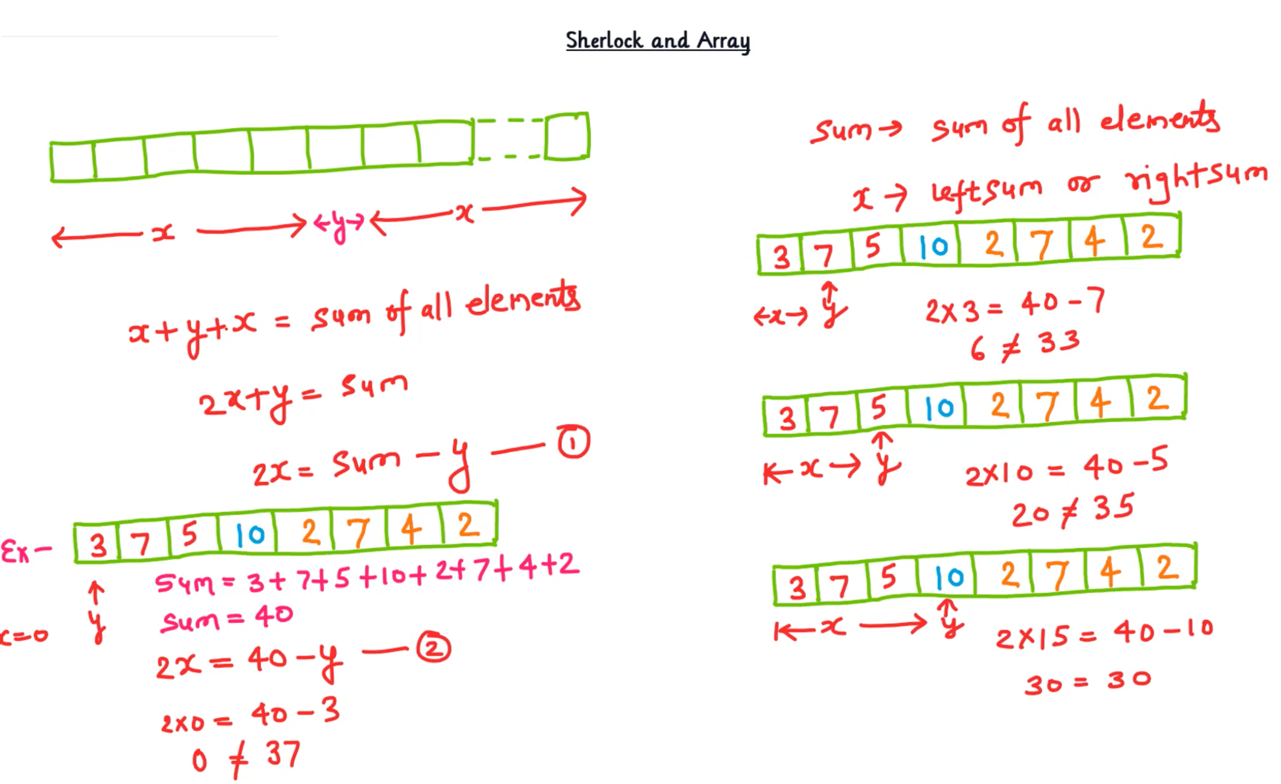 Sherlock and Array
x
y
x
x+y+x = sum of all elements
2x+y = sum
2x = sum - y — ①
Ex- 3 7 5 10 2 7 4 2
sum = 3+7+5+10+2+7+4+2
sum = 40
x=0
y
2x = 40-y — ②
2x0 = 40-3
0 ≠ 37
sum → sum of all elements
x → leftsum or rightsum
3 7 5 10 2 7 4 2
x y
2x3 = 40-7
6 ≠ 33
3 7 5 10 2 7 4 2
x y
2x10 = 40-5
20 ≠ 35
3 7 5 10 2 7 4 2
x y
2x15 = 40-10
30 = 30